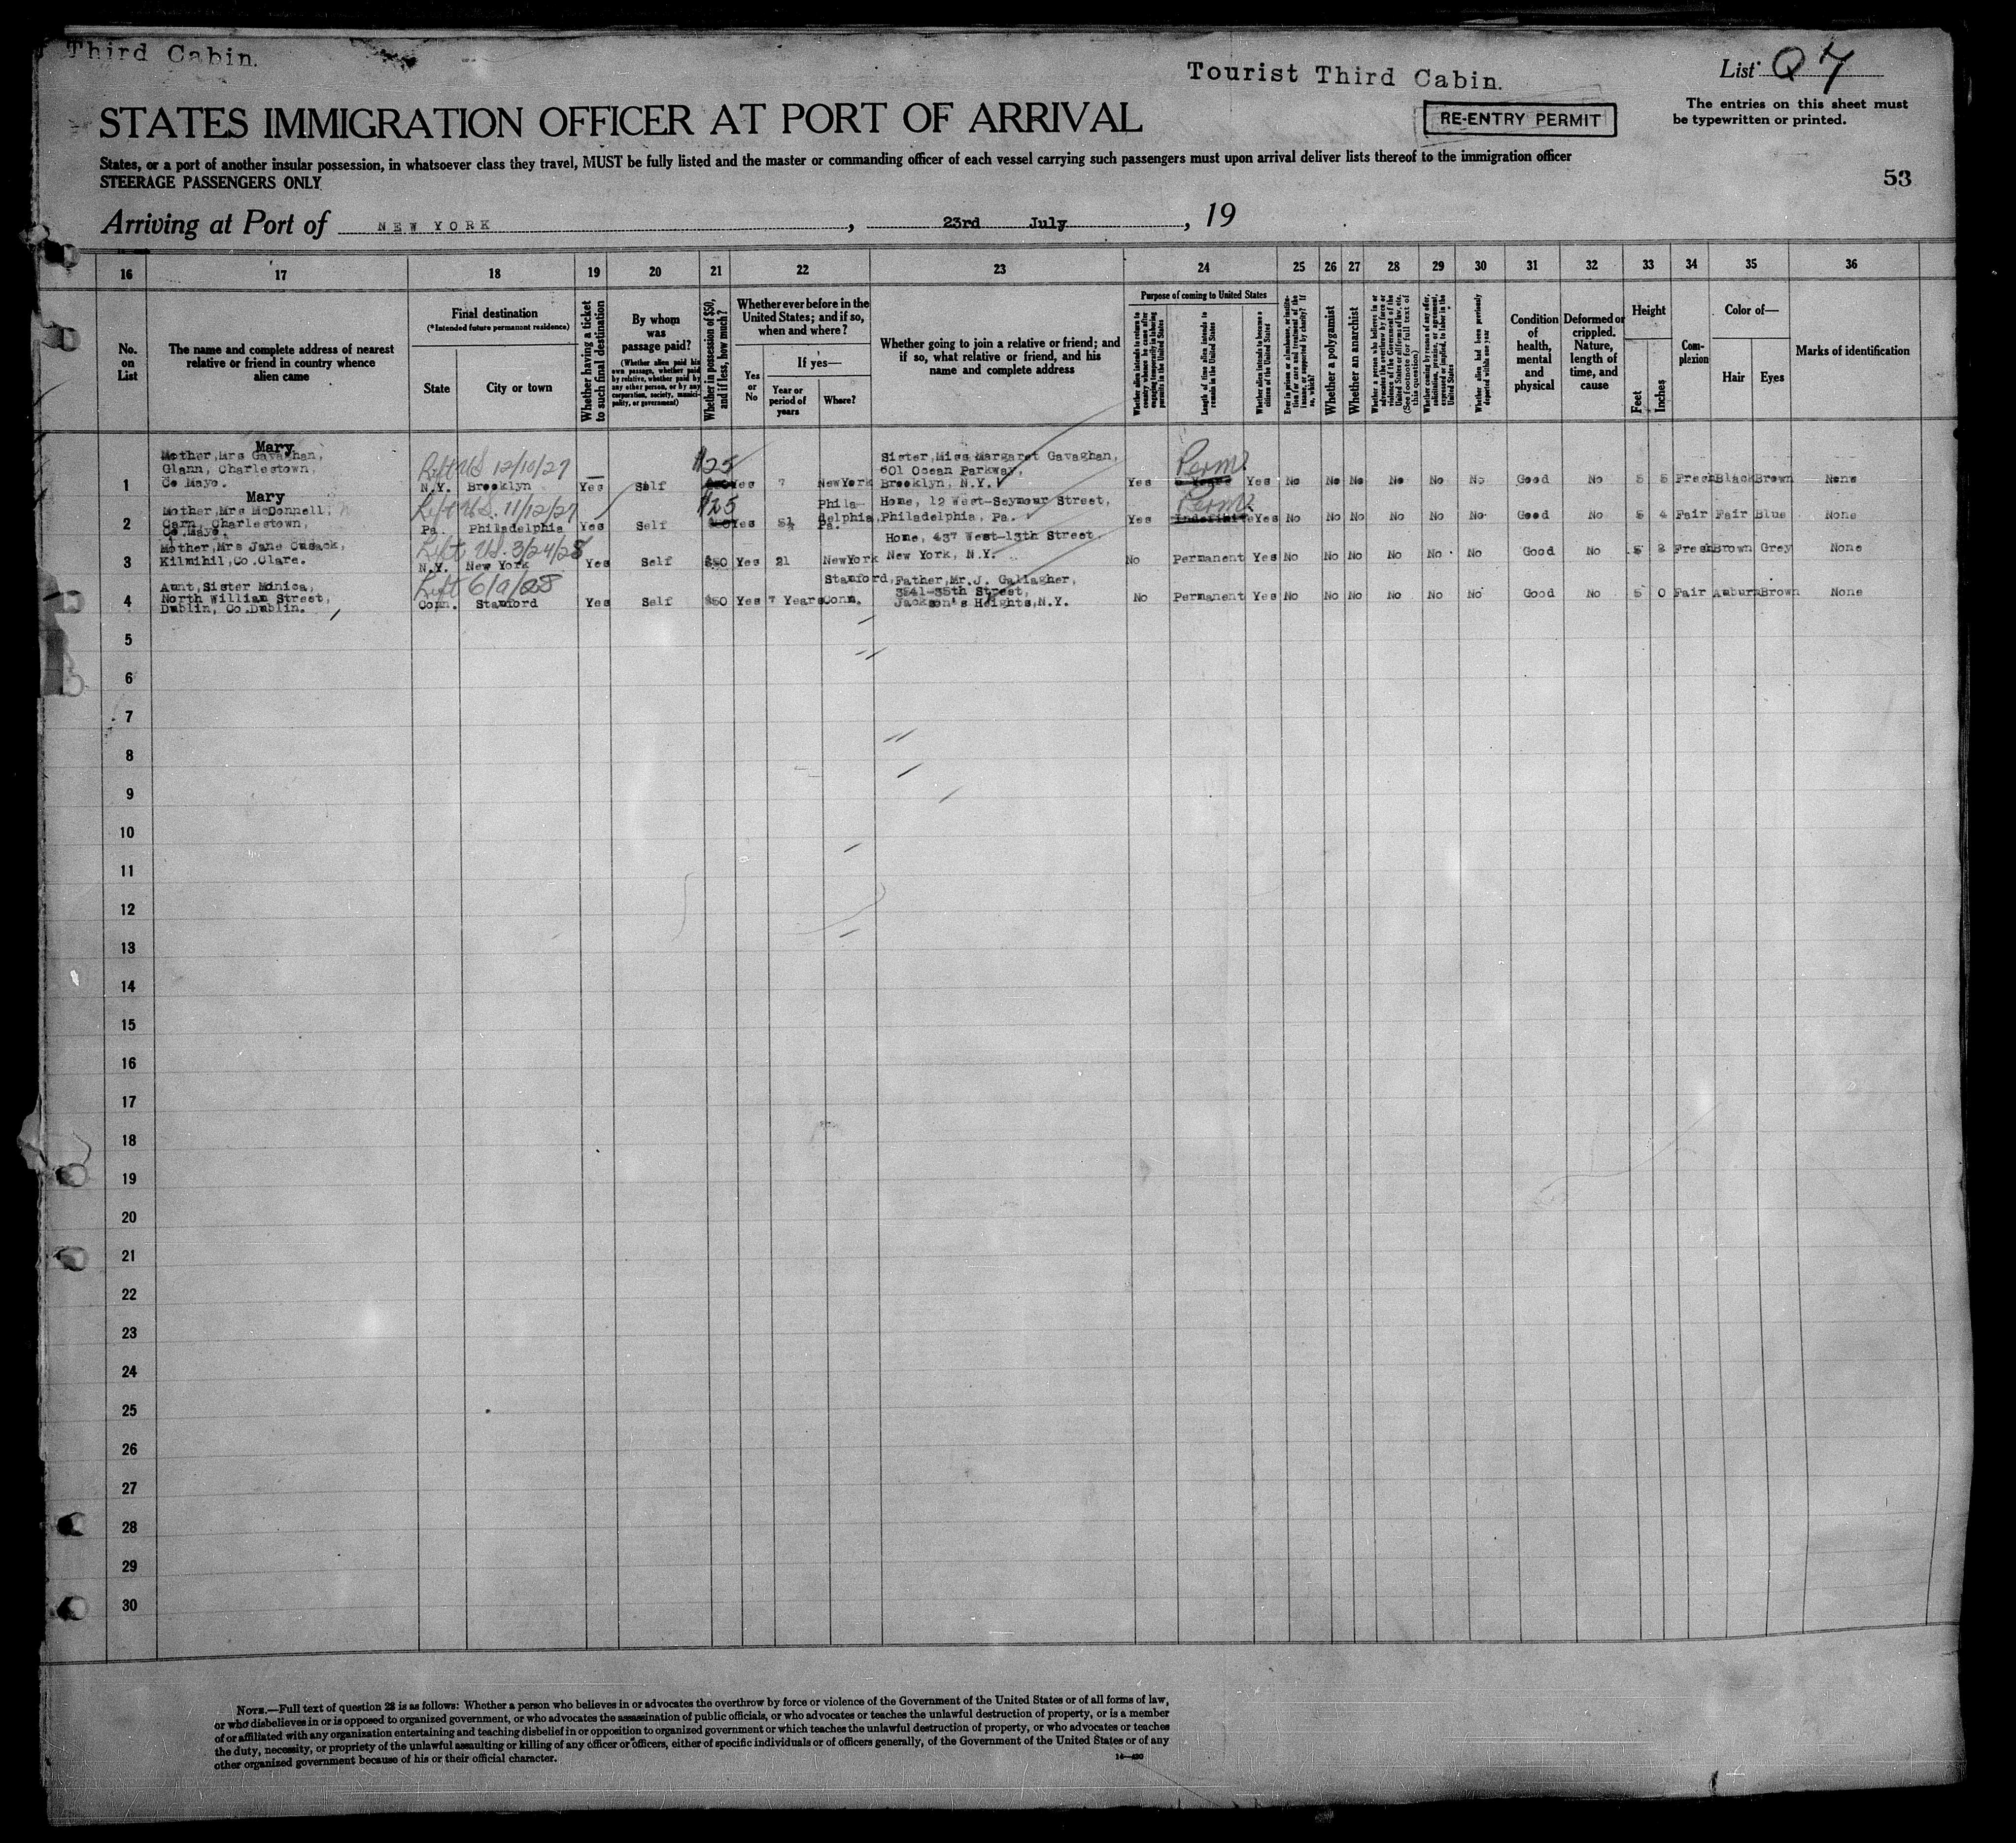 Third Cabin.
Tourist Third Cabin.
List Q 7
STATES IMMIGRATION OFFICER AT PORT OF ARRIVAL
RE-ENTRY PERMIT
The entries on this sheet must
be typewritten or printed.
States, or a port of another insular possession, in whatsoever class they travel, MUST be fully listed and the master or commanding officer of each vessel carrying such passengers must upon arrival deliver lists thereof to the immigration officer
STEERAGE PASSENGERS ONLY
53
Arriving at Port of NEW YORK, 23rd July, 19
16 17 18 19 20 21 22 23 24 25 26 27 28 29 30 31 32 33 34 35 36
No. on List
The name and complete address of nearest relative or friend in country whence alien came
Final destination
(*Intended future permanent residence)
State
City or town
Whether having a ticket to such final destination
By whom was passage paid?
(Whether alien paid his own passage, whether paid by relative, whether paid by any other person, or by any corporation, society, municipality, or government)
Whether in possession of $50, and if less, how much?
Whether ever before in the United States; and if so, when and where?
Yes or No
If yes—
Year or period of years
Where?
Whether going to join a relative or friend; and if so, what relative or friend, and his name and complete address
Purpose of coming to United States
Whether alien intends to return to country whence he came after engaging temporarily in laboring pursuits in the United States
Length of time alien intends to remain in the United States
Whether alien intends to become a citizen of the United States
Ever in prison or almshouse, or institution for care and treatment of the insane, or supported by charity? If so, which?
Whether a polygamist
Whether an anarchist
Whether a person who believes in or advocates the overthrow by force or violence of the Government of the United States or all forms of law, etc. (See footnote for full text of this question)
Whether coming by reason of any offer, solicitation, promise, or agreement, expressed or implied, to labor in the United States
Whether alien had been previously deported within one year
Condition of health, mental and physical
Deformed or crippled. Nature, length of time, and cause
Height
Feet
Inches
Complexion
Color of—
Hair
Eyes
Marks of identification
1 Mother, Mrs Mary Gavaghan, Glann, Charlestown, Co Mayo. Left US 12/10/27 N.Y. Brooklyn Yes Self $25 Yes 7 NewYork Sister, Miss Margaret Gavaghan, 601 Ocean Parkway, Brooklyn, N.Y. Yes Perm. Yes No No No No No No Good No 5 5 Fresh Black Brown None
2 Mother, Mrs Mary McDonnell, Carn, Charlestown, Co. Mayo. Left US. 11/12/27 Pa. Philadelphia Yes Self $25 Yes Philadelphia, Pa. Home, 12 West-Seymour Street, Philadelphia, Pa. Yes Perm. Indefinite Yes No No No No No No Good No 5 4 Fair Fair Blue None
3 Mother, Mrs Jane Cusack, Kilmihil, Co. Clare. Left US. 3/24/28 N.Y. New York Yes Self $50 Yes 21 NewYork Home, 437 West-13th Street, New York, N.Y. No Permanent Yes No No No No No No Good No 5 2 Fresh Brown Grey None
4 Aunt, Sister Monica, North William Street, Dublin, Co. Dublin. Left Conn. Stamford Yes Self $50 Yes 7 Years Stamford, Conn. Father, Mr. J. Gallagher, 3541-35th Street, Jackson's Heights, N.Y. No Permanent Yes No No No No No No Good No 5 0 Fair Auburn Brown None
5
6
7
8
9
10
11
12
13
14
15
16
17
18
19
20
21
22
23
24
25
26
27
28
29
30
NOTE.—Full text of question 28 is as follows: Whether a person who believes in or advocates the overthrow by force or violence of the Government of the United States or of all forms of law,
or who disbelieves in or is opposed to organized government, or who advocates the assassination of public officials, or who advocates or teaches the unlawful destruction of property, or is a member
of or affiliated with any organization entertaining and teaching disbelief in or opposition to organized government or which teaches the unlawful destruction of property, or who advocates or teaches
the duty, necessity, or propriety of the unlawful assaulting or killing of any officer or officers, either of specific individuals or of officers generally, of the Government of the United States or of any
other organized government because of his or their official character.